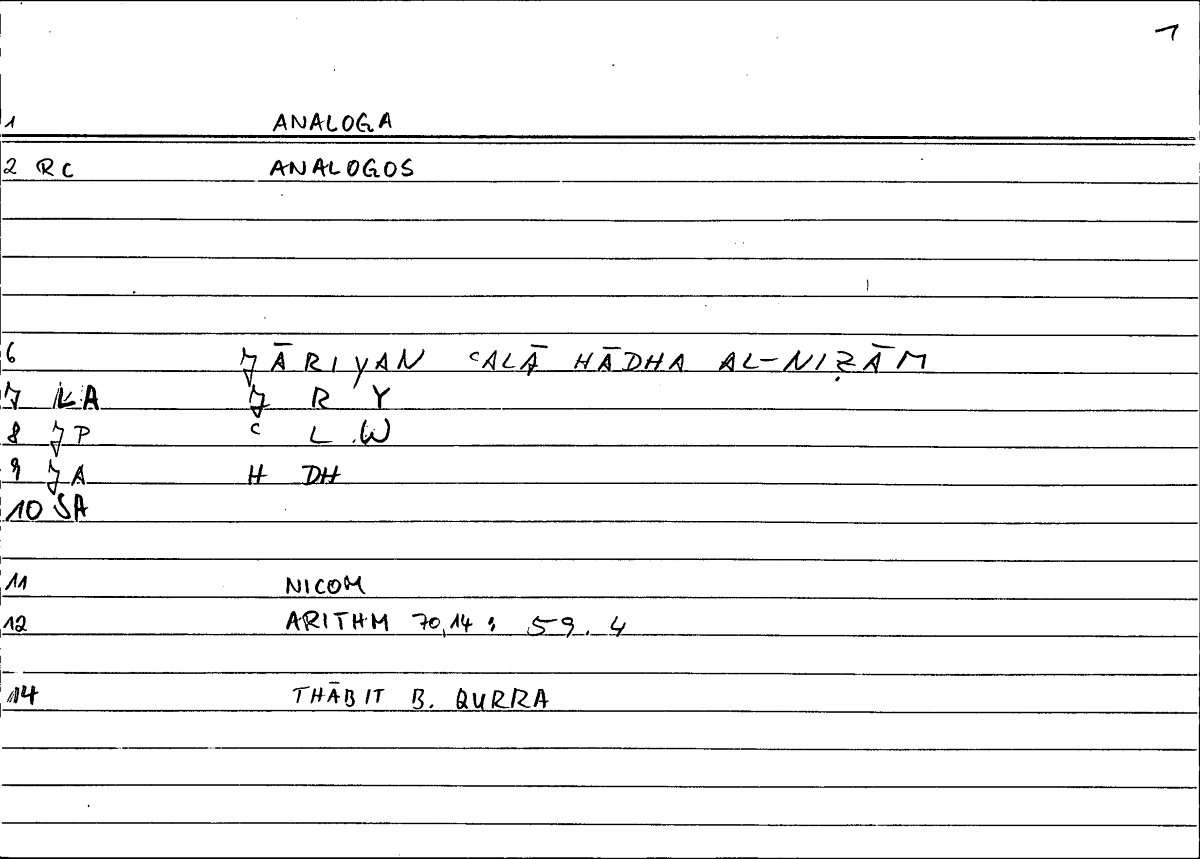 1
1 ANALOGA
2 RC ANALOGOS
6 JĀRIYAN ʿALĀ HĀDHA AL-NIẒĀM
7 LA J R Y
8 JP ʿ L W
9 JA H DH
10 SA
11 NICOM
12 ARITHM 70,14 : 59.4
14 THĀBIT B. QURRA